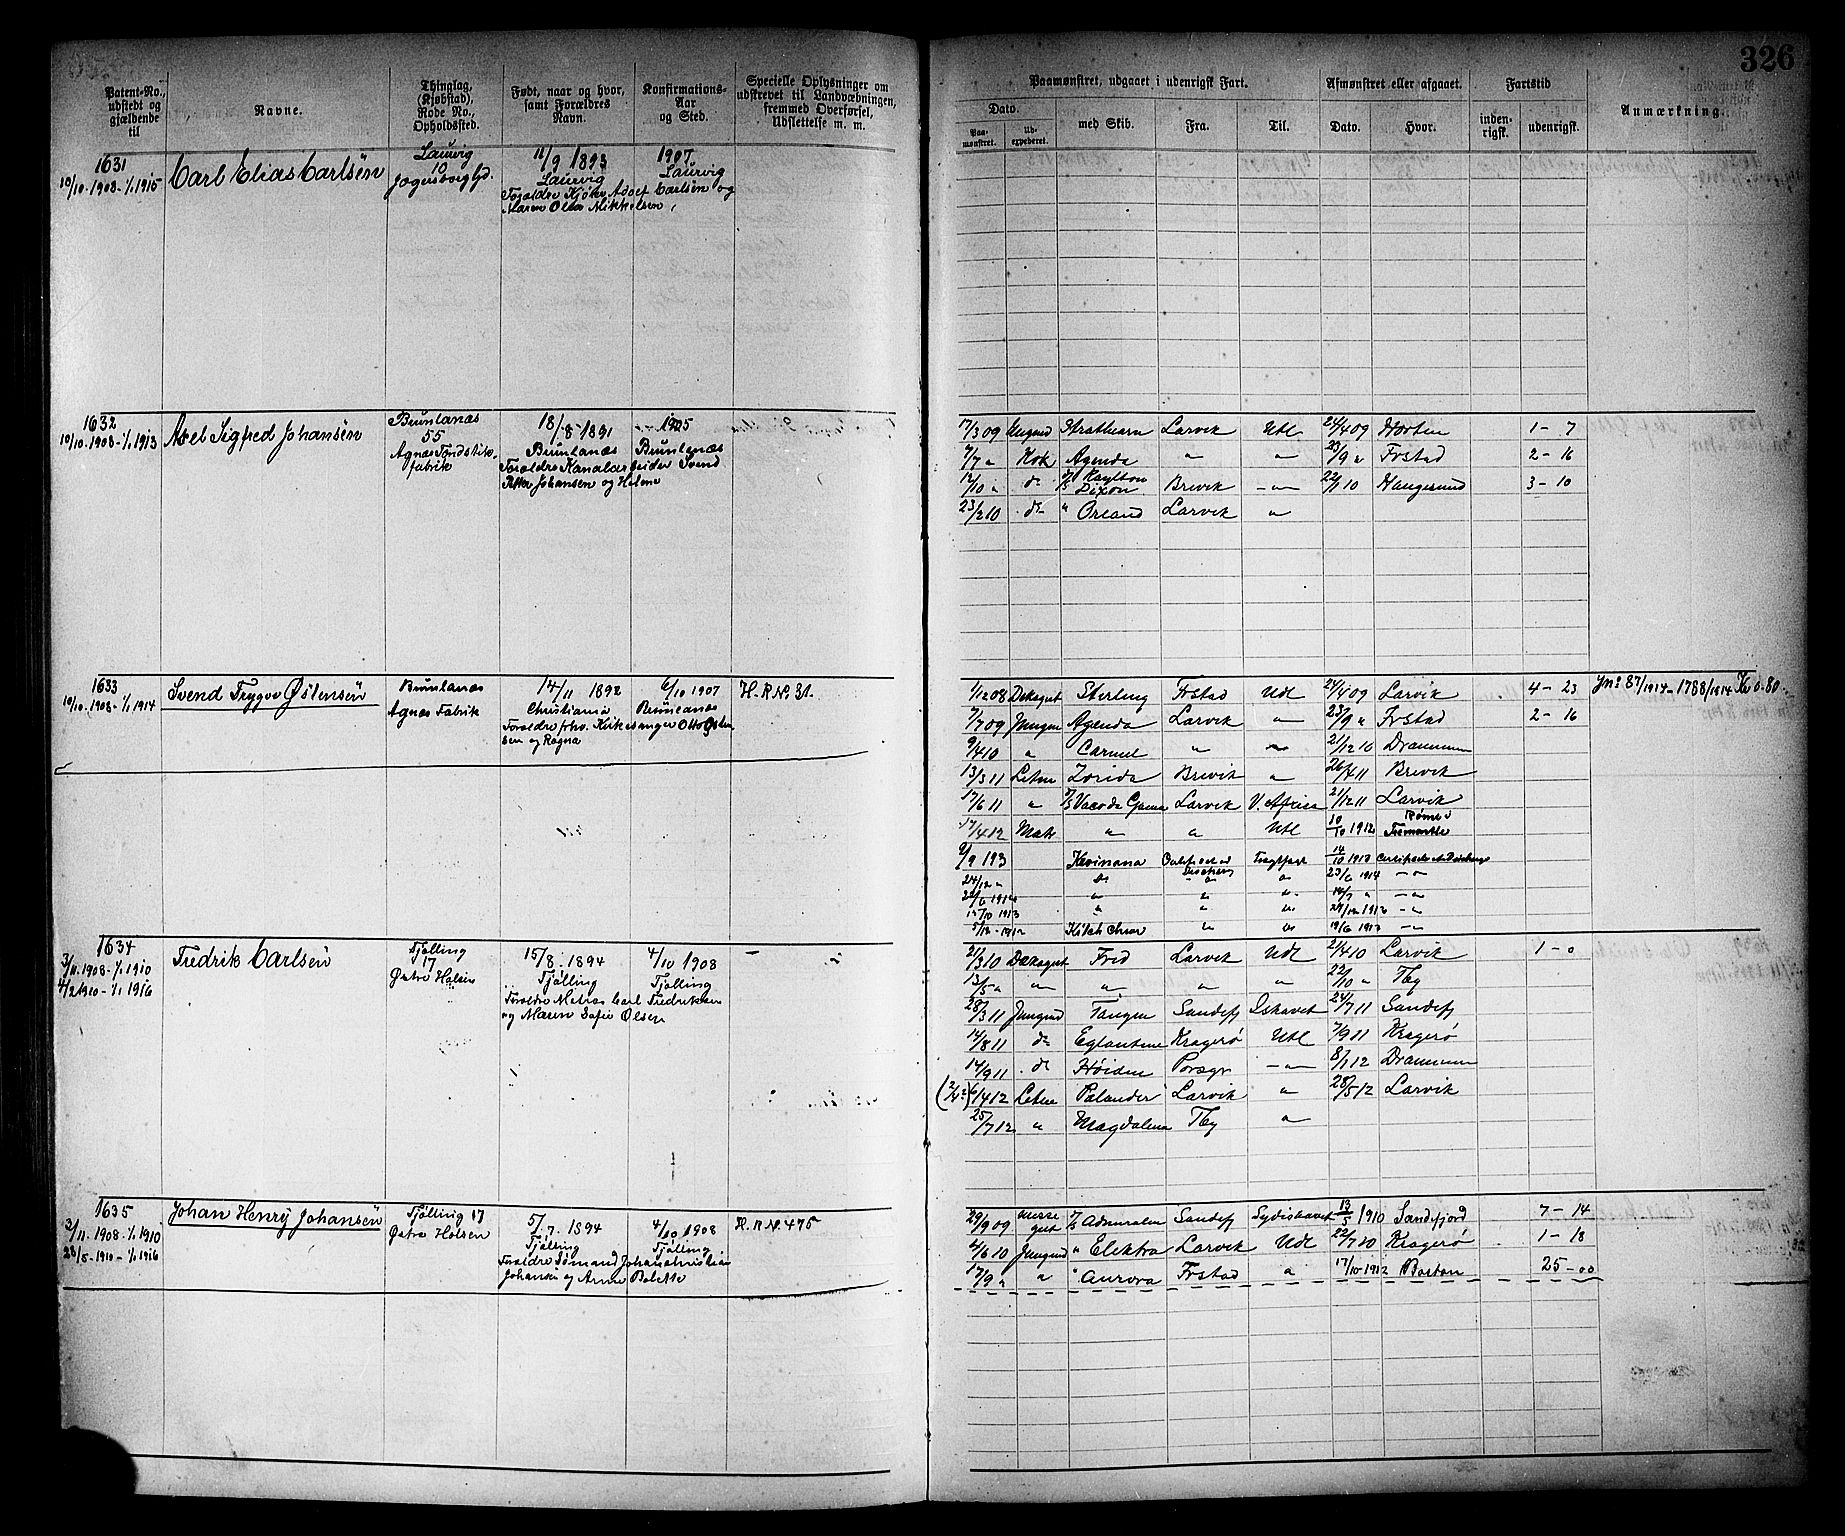 326
Patent-No., udstedt og gjældende til
Navne.
Thinglag, (Kjøbstad), Rode No., Opholdssted.
Født, naar og hvor, samt Forældres Navn.
Konfirmations-Aar og Sted.
Specielle Oplysninger om udskrevet til Landvæbningen, fremmed Overførsel, Udslettelse m. m.
Paamønstret, udgaaet i udenrigsk Fart.
Afmønstret eller afgaaet.
Fartstid
Anmærkning.
Dato.
Paa-mønstret.
Ud-expederet.
med Skib.
Fra.
Til.
Dato.
Hvor.
inden-rigsk.
udenrigsk.
1631
10/10.1908-1/1 1915
Carl Elias Carlsén
Laurvig
10
11/9 1893
Laurvig
Adolf Carlsen og
Maren Olise Mikkelsen
1907
Laurvig
1632
10/10.1908-1/1 1913
Axel Sigfred Johansén
Brunlanæs
55
Agnes Fyrstikfabrik
18/8 1891
Brunlanæs
Foreldre Kanalarbeider Svend
Petter Johansen og Helene
1905
Brunlanæs
17/3 09 Jungmd Strathearn Larvik Utl 24/4 09 Horten 1-7
7/7 " Kok Agenda " " 23/9 " Frstad 2-16
12/10 " do Raylton Dixon Brevik -"- 22/1 10 Haugesund 3-10
23/2 10 do " Orland Larvik "
1633
10/10.1908-1/1 1914
Svend Trygve Østensén
Brunlanæs
Agnes Fabrik
14/11 1892
Christiania
Foreldre fhv. Kirkesanger Otto Østensen og Ragna
6/10 1907
Brunlanæs
H. R. No 31.
1/12 08 Dæksgut Sterling Frstad Utl 24/4 09 Larvik 4-23
Jn: 87/1914-1788/1914 Kr 0.80
7/7 09 Jungm Agenda Larvik " 23/9 " Frstad 2-16
9/4 10 " Carmel " " 21/12 10 Drammen
13/3 11 Letm Zorida Brevik " 26/4 11 Brevik
17/6 11 " Vasco da Gama Larvik V. Africa 21/12 11 Larvik
17/4 12 Matr " " Utl 10/10 1912 Fremantle
Kevinana
Fragtfart 14/10 1913
24/12 " Do " " 23/6 1914 -"-
" " " 14/7 " -"-
15/10 1913 " " "
19/6 1913 -"-
1634
3/11.1908-1/1 1910
4/2 1910-1/1 1916
Fredrik Carlsén
Tjølling
17
Østre Halsen
15/8 1894
Tjølling
Foreldre Matros Carl Fredriksen
og Maren Sofie Olsen
4/10 1908
Tjølling
-
21/3 10 Dæksgut Fred Larvik Utl 21/4 10 Larvik 1-0
13/5 " " " " " 22/10 " Tbg
28/3 11 Jungmd Tangen Sandefj Ishavet 24/7 11 Sandefj
14/8 11 do Eglantine Kragerø Utl 7/9 11 Kragerø
14/9 11 do Høiden Porsgr -"- 8/1 12 Drammen
14 12 Letm Palander Larvik " 28/5 12 Larvik
25/7 12 " Magdalena Tbg "
1635
3/11.1908-1/1 1910
28/5.1910-1/1 1916
Johan Henry Johansén
Tjølling 17
Østre Halsen
5/7 1894
Tjølling
Foreldre Sømand Johan Christian
Johansen og Anne Bolette
4/10 1908
Tjølling
H. R. No 475
29/9 09 messegut Admiralen Sandefj Sydishavet 13/5 1910 Sandefjord 7-14
4/6 10 Jungmd " Elektra Larvik Utl 22/7 10 Kragerø 1-18
17/9 " " " Aurora Frstad " 17/10-1912 Boston 25-00